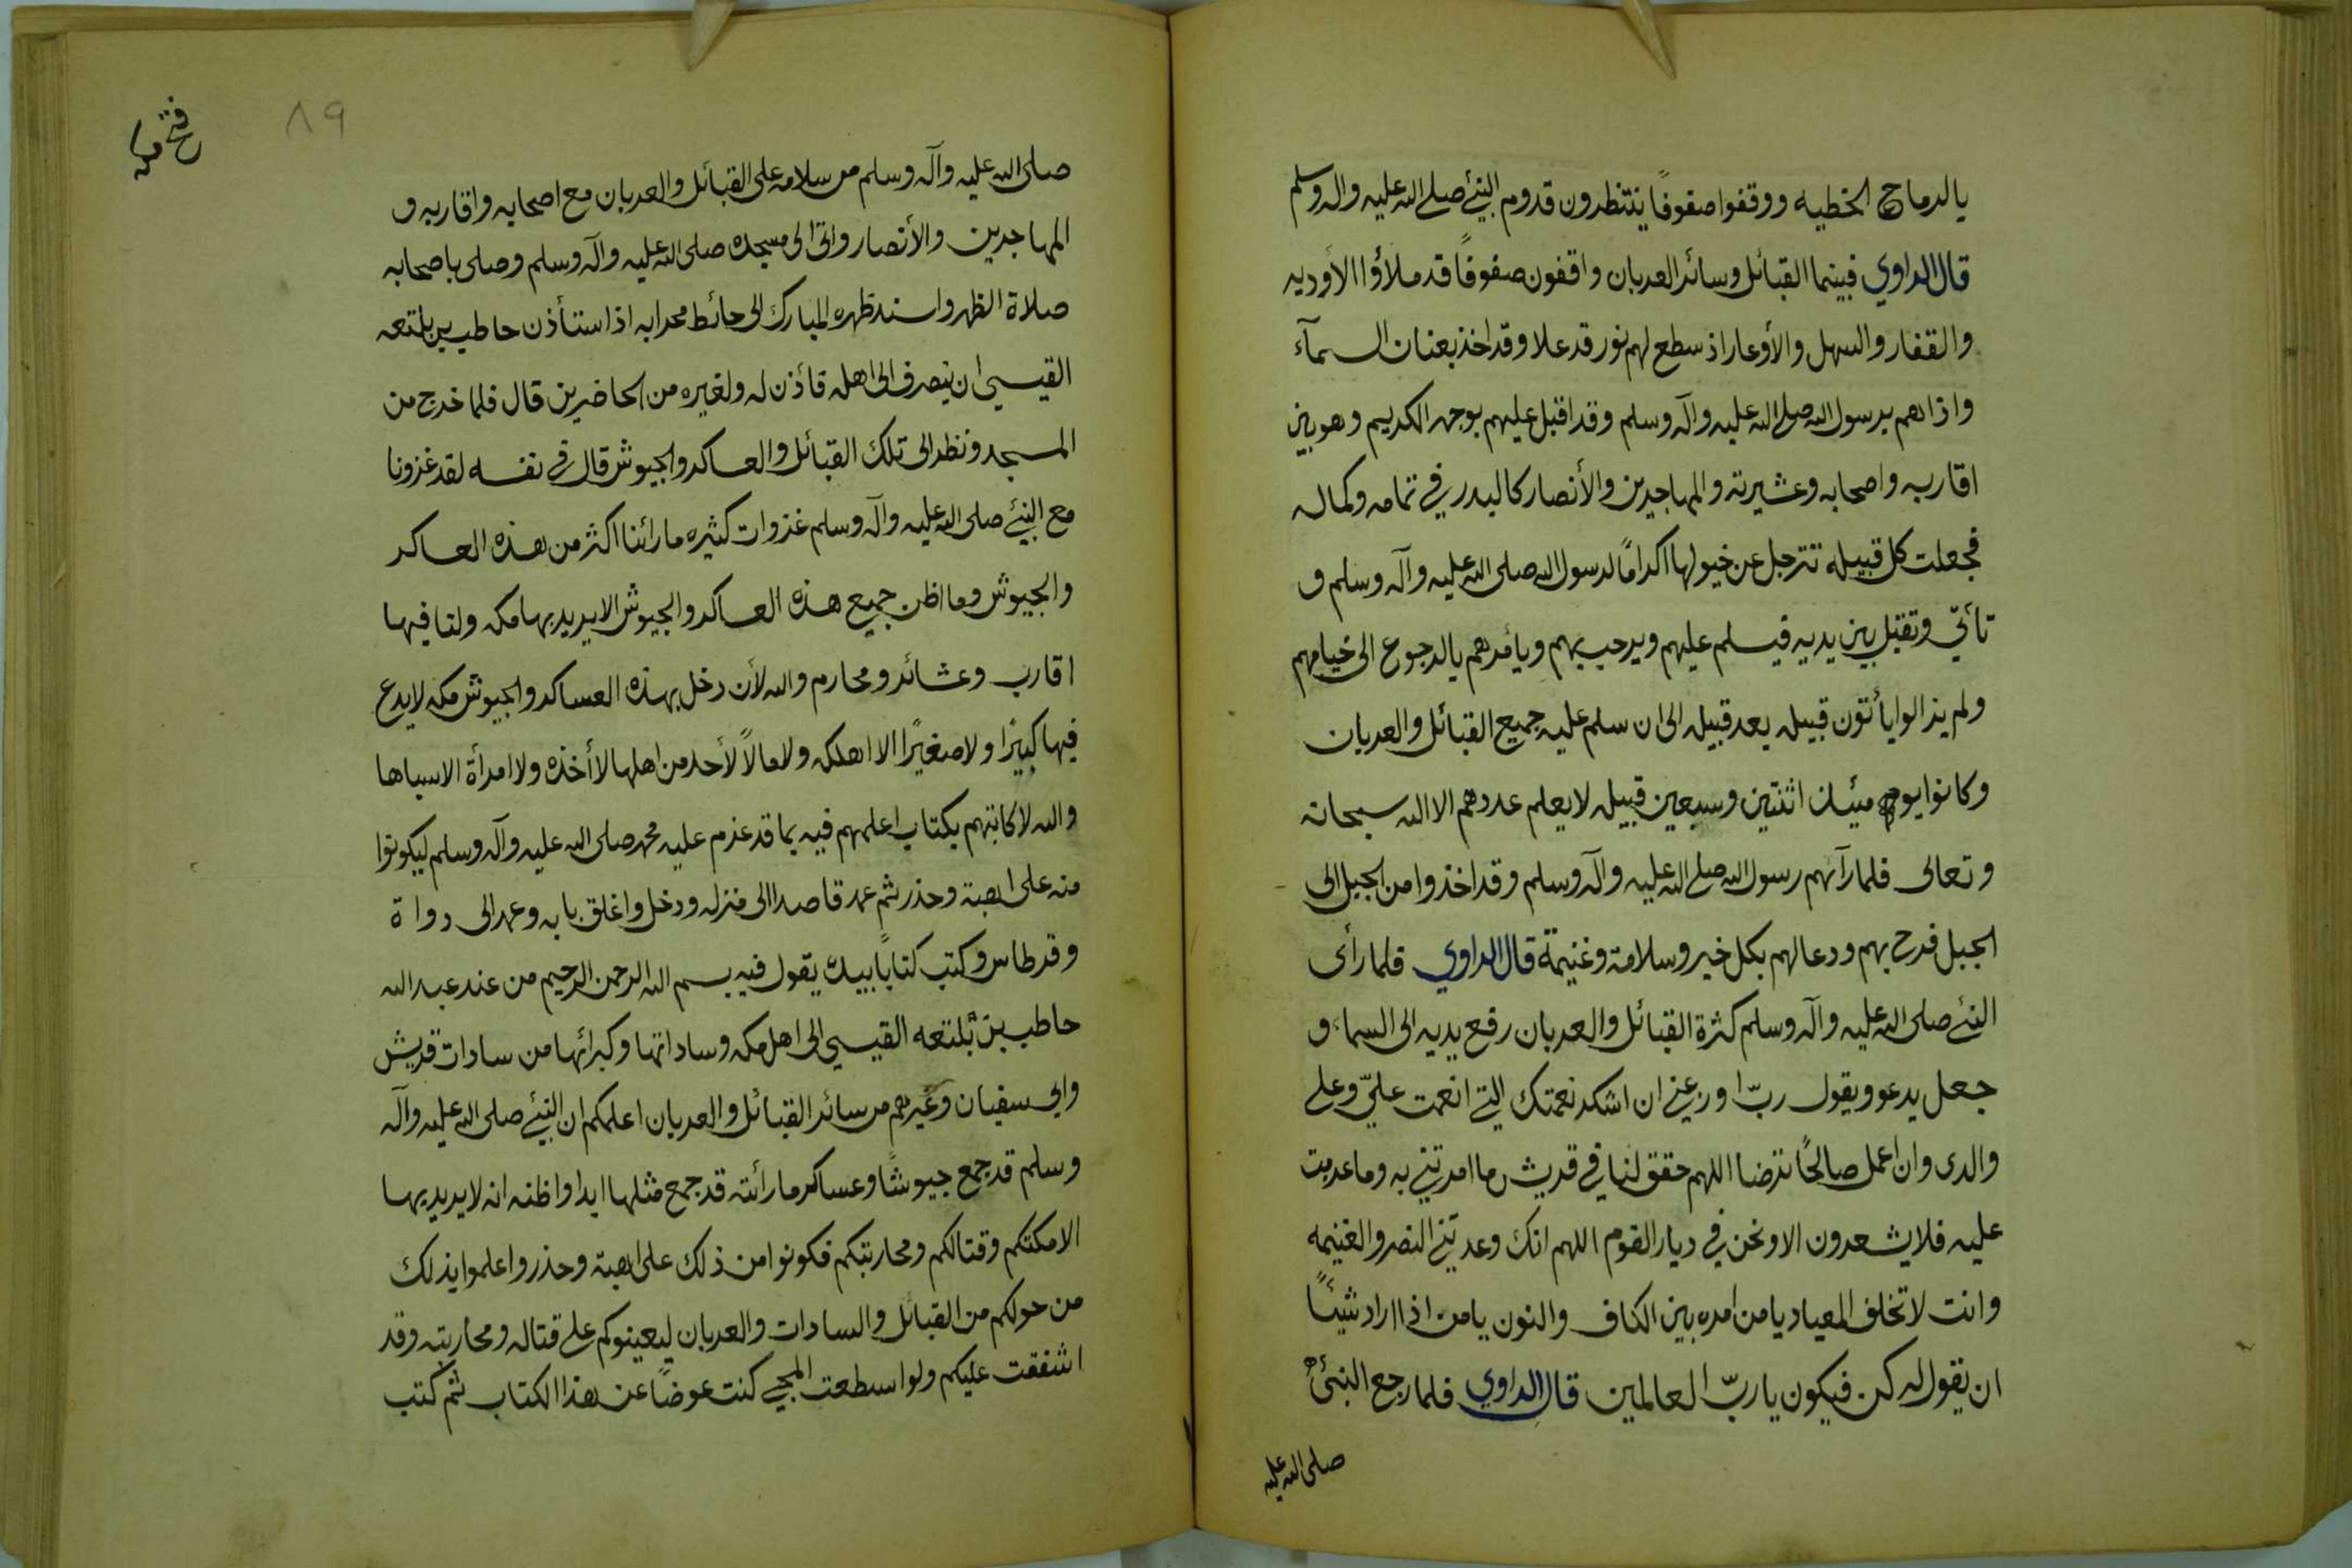 بالرماح الخطيه ووقفوا صفوفًا ينتظرون قدوم النبيّ صلى الله عليه واله وسلم
قال الراوي فبينما القبائل وسائر العربان واقفون صفوفًا قد ملاؤا الأوديه
والقفار والسهل والأوعار اذ سطع لهم نور قد علا وقد اخذ بعنان السمآء
واذاهم برسول الله صلى الله عليه وآله وسلم وقد اقبل عليهم بوجهه الكريم وهو بين
اقاربه واصحابه وعشيرته والمهاجرين والأنصار كالبدر في تمامه وكماله
فجعلت كل قبيله تترجل عن خيولها اكرامًا لرسول الله صلى الله عليه وآله وسلم و
تأتي وتقبّل بين يديه فيسلم عليهم ويرحب بهم ويأمرهم بالرجوع الى خيامهم
ولم يزالوا يأتون قبيله بعد قبيله الى ان سلم عليه جميع القبائل والعربان
وكانوا يومئذ مئتان اثنتين وسبعين قبيله لا يعلم عددهم الا الله سبحانه
وتعالى فلما رآئهم رسول الله صلى الله عليه وآله وسلم وقد اخذوا من الجبل الى
الجبل فرح بهم ودعا لهم بكل خير وسلامة وغنيمة قال الراوي فلما رأى
النبيّ صلى الله عليه وآله وسلم كثرة القبائل والعربان رفع يديه الى السماء و
جعل يدعو ويقول ربّ اوزعني ان اشكر نعمتك التي انعمت عليّ وعلى
والدى وان اعمل صالحًا ترضا اللهم حقق لنا في قريش ما امرتني به وما عزمت
عليه فلا يشعرون الا ونحن في ديار القوم اللهم انك وعدتني النصر والغنيمه
وانت لا تخلف الميعاد يا من امره بين الكاف والنون يا من اذا اراد شيئًا
ان يقول له كن فيكون يا ربّ العالمين قال الراوي فلما رجع النبيّ
صلى الله عليه
فتح مكه
٨٩
صلى الله عليه وآله وسلم من سلامه على القبائل والعربان مع اصحابه واقاربه و
المهاجرين والأنصار واتى الى مسجده صلى الله عليه وآله وسلم وصلى باصحابه
صلاة الظهر واسند ظهره المبارك الى حائط محرابه اذ استأذن حاطب بن بلتعه
القيسي ان ينصرف الى اهله فأذن له ولغيره من الحاضرين قال فلما خرج من
المسجد ونظر الى تلك القبائل والعساكر والجيوش قال في نفسه لقد غزونا
مع النبيّ صلى الله عليه وآله وسلم غزوات كثيره ما رائنا اكثر من هذه العساكر
والجيوش وما اظن جميع هذه العساكر والجيوش الا يريد بها مكه ولنا فيها
اقارب وعشائر ومحارم والله لأن دخل بهذه العساكر والجيوش مكه لا يدع
فيها كبيرًا ولا صغيرًا الا اهلكه ولا مالاً لأحد من اهلها الا أخذه ولا امرأة الا سباها
والله لا كاتبنهم بكتاب اعلمهم فيه بما قد عزم عليه محمد صلى الله عليه وآله وسلم ليكونوا
منه على اهبة وحذر ثم عمد قاصدا الى منزله ودخل واغلق بابه وعمد الى دواة
وقرطاس وكتب كتابًا بيده يقول فيه بسم الله الرحمن الرحيم من عند عبد الله
حاطب بن بلتعه القيسي الى اهل مكه وساداتها وكبرائها من سادات قريش
وابي سفيان وغيرهم من سائر القبائل والعربان اعلمكم ان النبيّ صلى الله عليه وآله
وسلم قد جمع جيوشًا وعساكر ما رائته قد جمع مثلها ابدا واظنه انه لا يريد بها
الا مكتكم وقتالكم ومحاربتكم فكونوا من ذلك على اهبة وحذر واعلموا بذلك
من حولكم من القبائل والسادات والعربان ليعينوكم على قتاله ومحاربته وقد
اشفقت عليكم ولو اسطعت المجئ كنت عوضًا عن هذا الكتاب ثم كتب